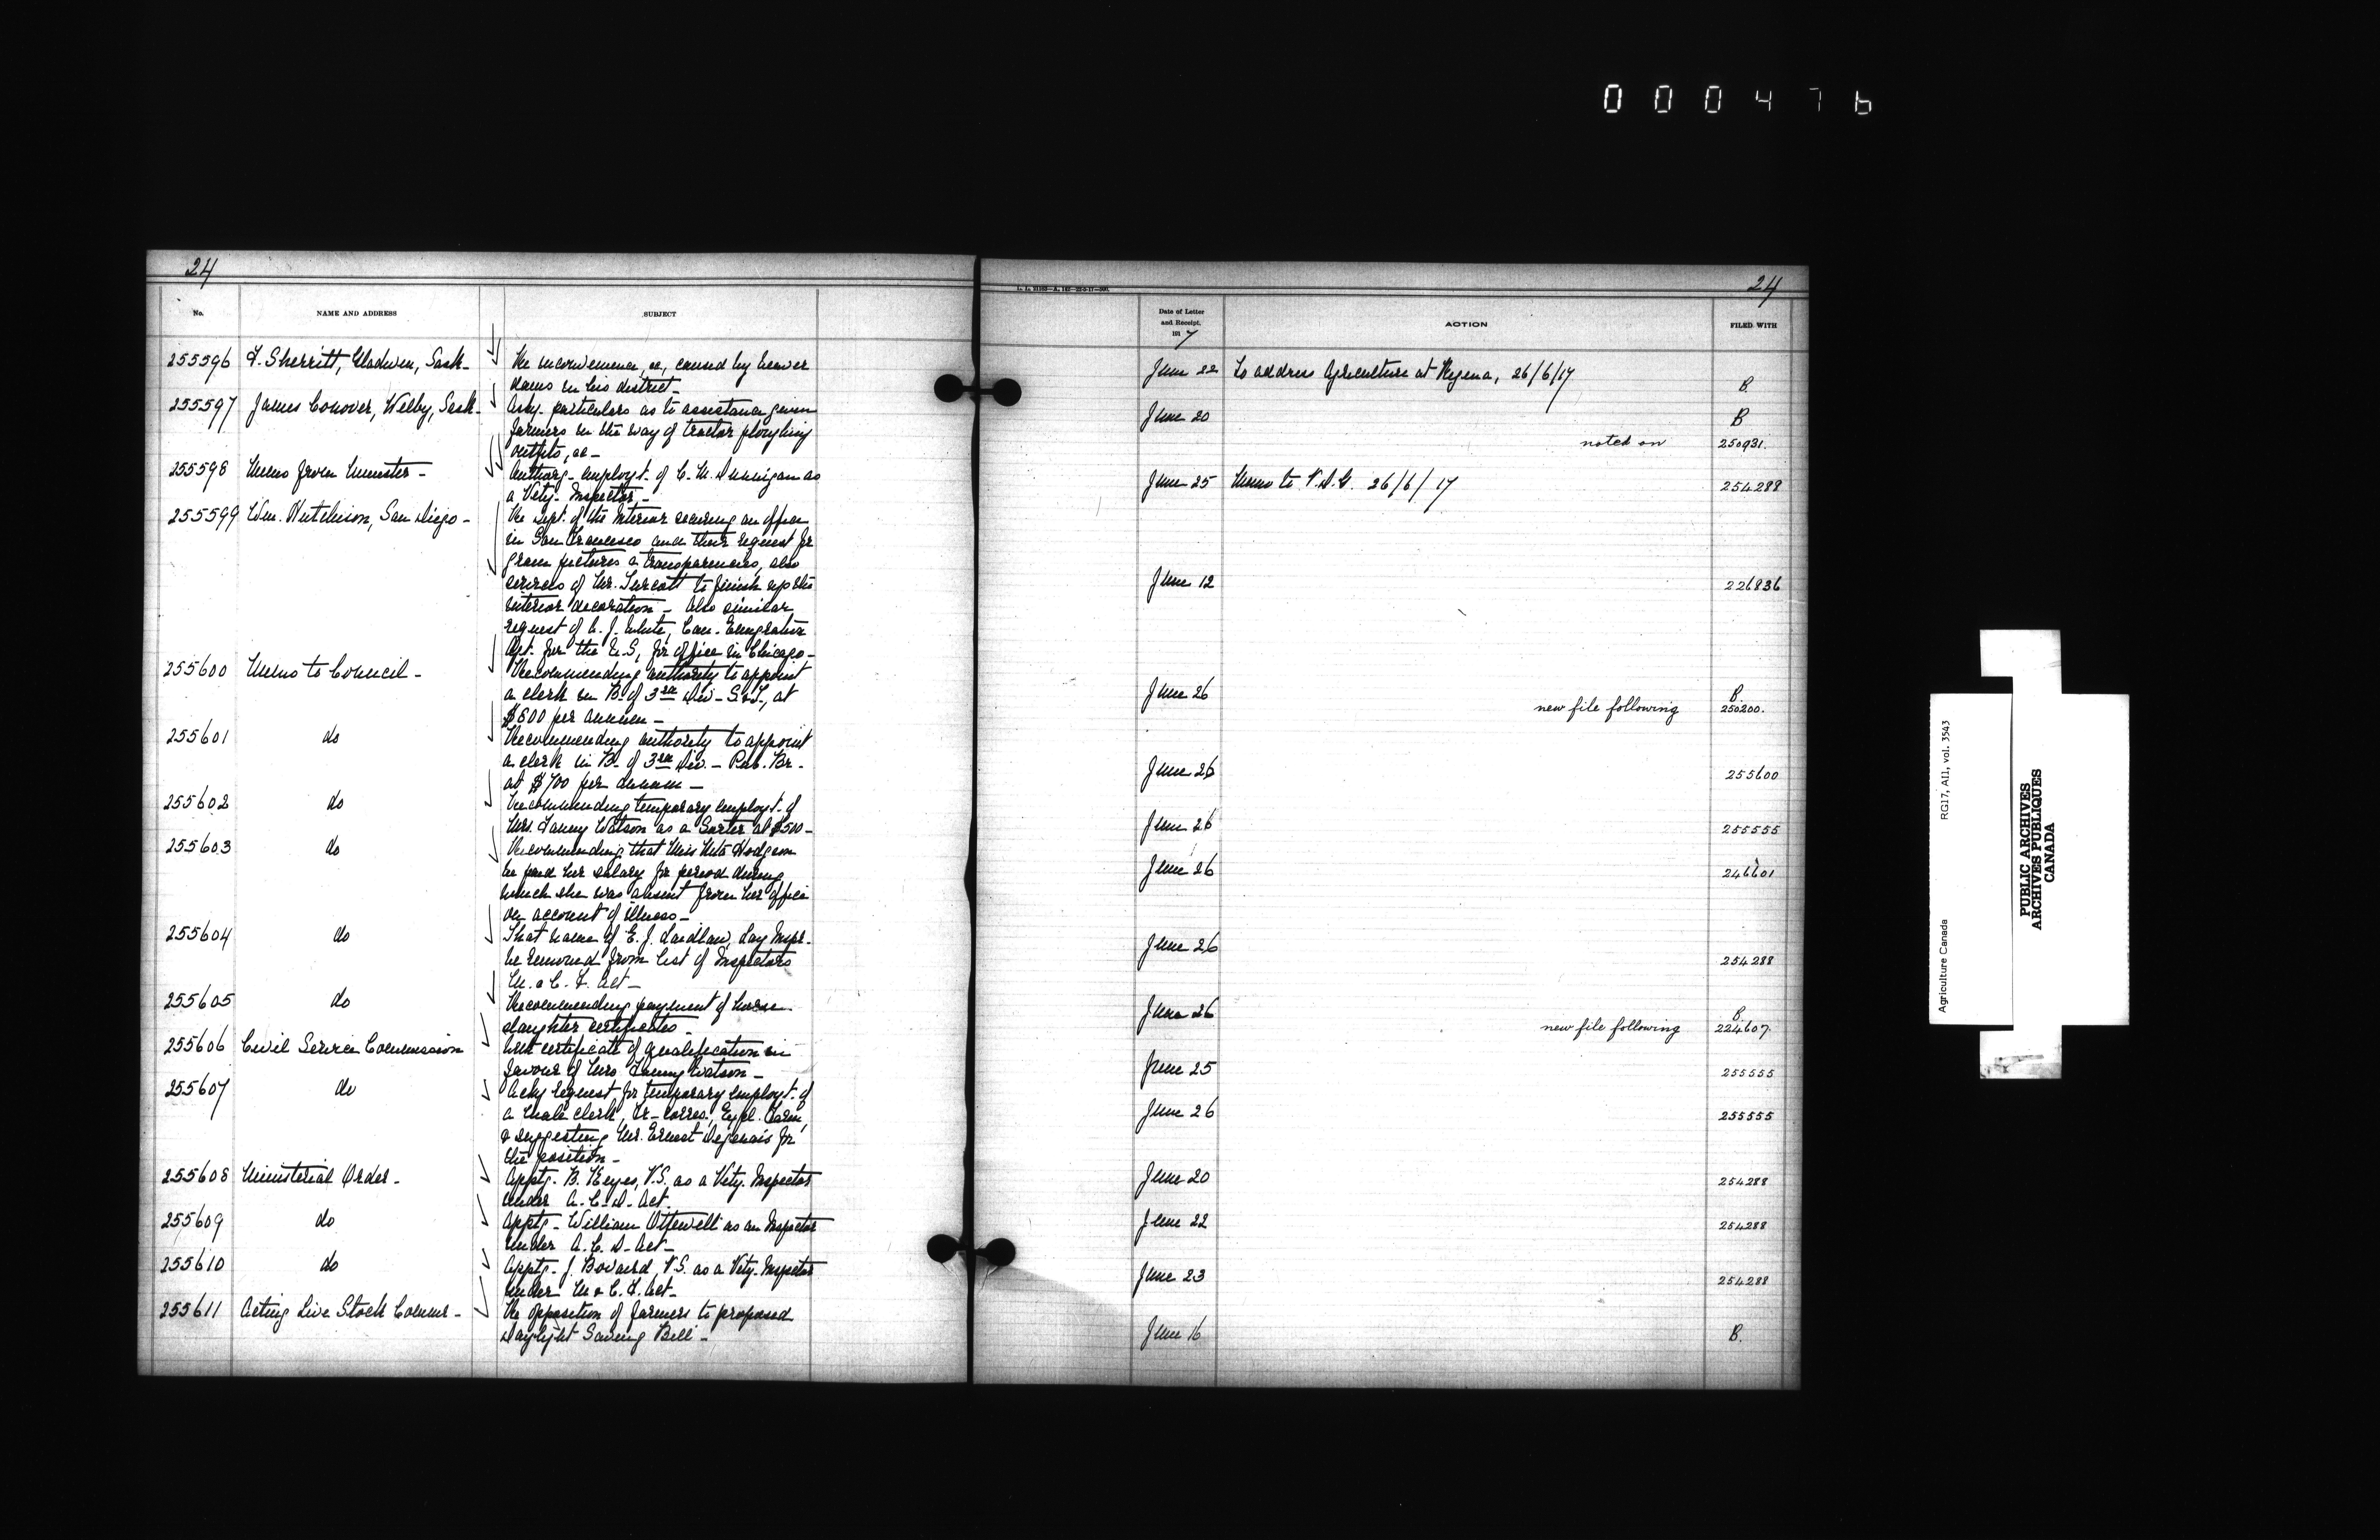 000476
24
No. NAME AND ADDRESS SUBJECT
255596 F. Sherritt, Gladwin, Sask- The inconvenience, &c, caused by beaver
dams in his district-
255597 James Conover, Welby, Sask- Askg. particulars as to assistance given
farmers in the way of tractor ploughing
outfits, &c-
255598 Memo from Minister- Authorg- employt. of C. M. Dunnigan as
a Vety- Inspector,-
255599 Wm. Hutchison, San Diego- The Dept. of the Interior securing an office
in San Francisco and their request for
grain pictures & transparencies, also
services of Mr. Turcott to finish up the
interior decoration- Also similar
request of W. J. White, Can- Emigration
Agt. for the U.S, for office in Chicago-
255600 Memo to Council- Recommending authority to appoint
a clerk in B. of 3rd Div- S & I., at
$500 per annum-
255601 do Recommending authority to appoint
a clerk in B. of 3rd Div.- Pub. Br.-
at $700 per annum-
255602 do Recommending temporary employt. of
Mrs. Fanny Watson as a Sorter at $500-
255603 do Recommending that Miss Meta Hodgson
be paid her salary for period during
which she was absent from her office
on account of illness-
255604 do That name of E. J. Laidlaw, Lay Inspr.
be removed from list of Inspectors
M. & C. F. Act-
255605 do Recommending payment of horse
slaughter certificates-
255606 Civil Service Commission With certificate of qualification in
favour of Mrs Fanny Watson-
255607 do Ackg request for temporary employt. of
a male clerk, Fr- corres., Expl. Farm,
& suggesting Mr. Ernest Degenais for
the position-
255608 Ministerial Order- Apptg- B. Keyes, V.S. as a Vety. Inspector
under A. C. D. Act.
255609 do Apptg- William Ottewell as an Inspector
under A. C. D- Act-
255610 do Apptg- J. Bovaird, V.S. as a Vety- Inspector
under M & C. F. Act-
255611 Acting Live Stock Commr- The opposition of farmers to proposed
Daylight Saving Bill-
24
Date of Letter
and Receipt,
1917
ACTION FILED WITH
June 22 To address Agriculture at Regina, 26/6/17 B.
June 20 B
noted on 250931.
June 25 Memo to V.D.G. 26/6/17 254288
June 12 226836
June 26 B.
new file following 250200.
June 26 255600
June 26 255555
June 26 246601
June 26 254288
June 26 B.
new file following 224607.
June 25 255555
June 26 255555
June 20 254288
June 22 254288
June 23 254288
June 16 B.
Agriculture Canada RG17, A11, vol. 3543
PUBLIC ARCHIVES
ARCHIVES PUBLIQUES
CANADA